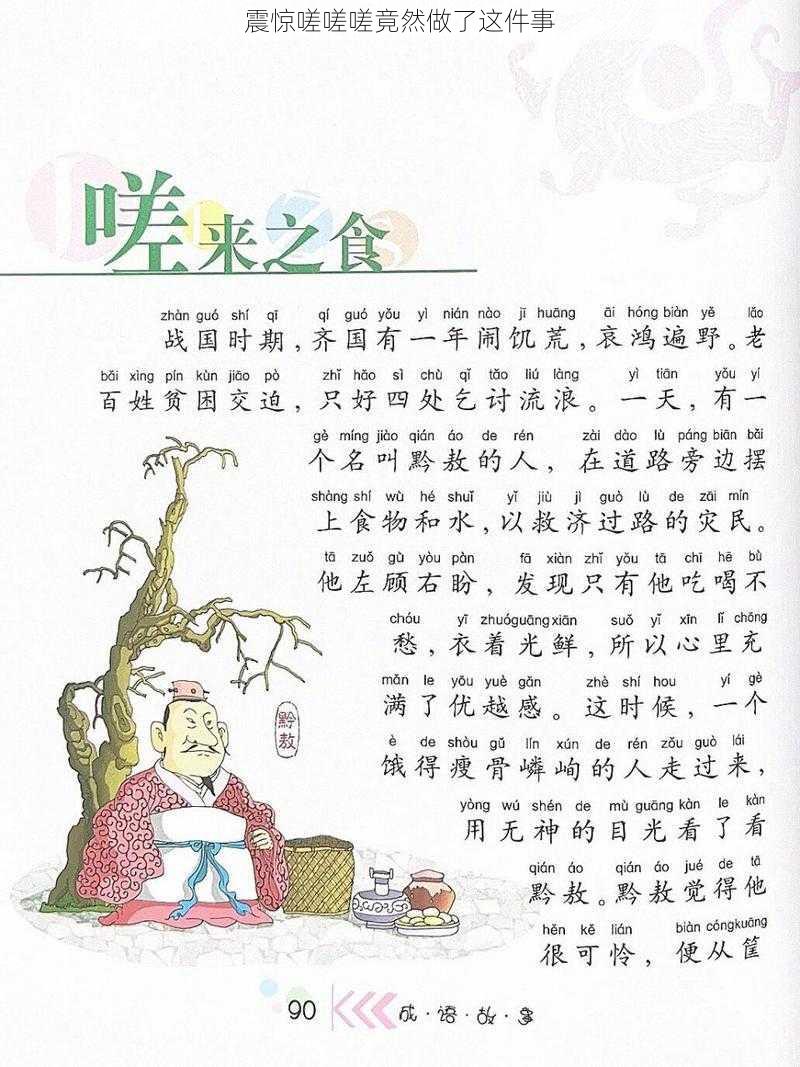 震惊嗟嗟嗟竟然做了这件事
嗟来之食
zhàn guó shí qī qí guó yǒu yì nián nào jī huāng āi hóng biàn yě lǎo
战国时期，齐国有一年闹饥荒，哀鸿遍野。老
bǎi xìng pín kùn jiāo pò zhǐ hǎo sì chù qǐ tǎo liú làng yì tiān yǒu yí
百姓贫困交迫，只好四处乞讨流浪。一天，有一
gè míng jiào qián áo de rén zài dào lù páng biān bǎi
个名叫黔敖的人，在道路旁边摆
shàng shí wù hé shuǐ yǐ jiù jì guò lù de zāi mín
上食物和水，以救济过路的灾民。
tā zuǒ gù yòu pàn fā xiàn zhǐ yǒu tā chī hē bù
他左顾右盼，发现只有他吃喝不
chóu yī zhuó guāng xiān suǒ yǐ xīn lǐ chōng
愁，衣着光鲜，所以心里充
mǎn le yōu yuè gǎn zhè shí hou yí gè
满了优越感。这时候，一个
è de shòu gǔ lín xún de rén zǒu guò lái
饿得瘦骨嶙峋的人走过来，
yòng wú shén de mù guāng kàn le kàn
用无神的目光看了看
qián áo qián áo jué de tā
黔敖。黔敖觉得他
hěn kě lián biàn cóng kuāng
很可怜，便从筐
黔敖
90 成·语·故·事